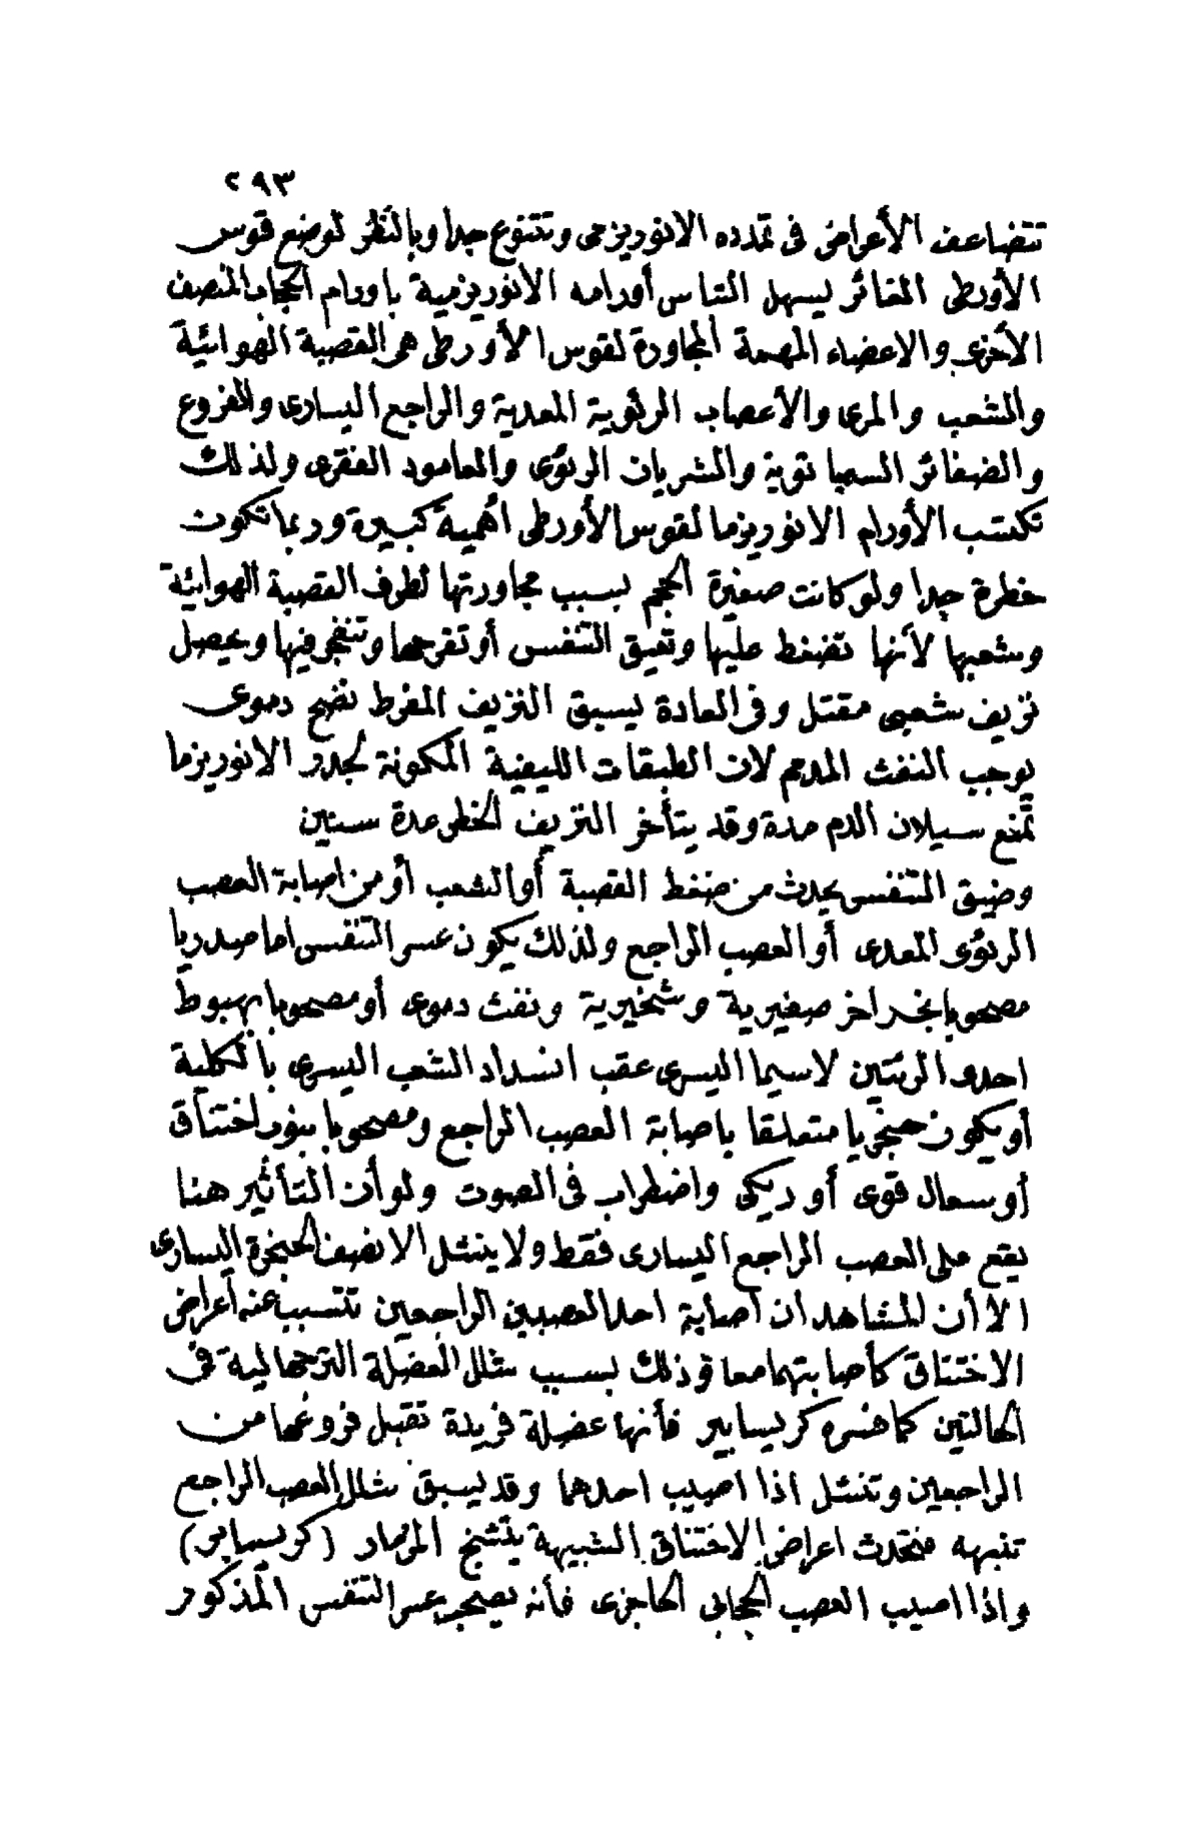 ٢٩٣
تتضاعف الأعراض فى تمدده الانوريزمى وتتنوع جدا وبالنظر لوضع قوس
الأورطى الغائر ليسهل التباس أورامه الانوريزمية باورام الحجاب المنصف
الأخرى والاعضاء المهمة المجاورة لقوس الأورطى هى القصبة الهوائية
والشعب والمرى والأعصاب الرئوية المعدية والراجع اليسارى والفروع
والضفائر السمباتوية والشريان الرئوى والعامود الفقرى ولذلك
تكتسب الأورام الانوريزما لقوس الأورطى اهمية كبيرة وربما تكون
خطرة جدا ولو كانت صغيرة الحجم بسبب مجاورتها لطرف القصبة الهوائية
وشعبها لأنها تضغط عليها وتعيق التنفس أو تقرحها وتنفجر فيها ويحصل
نزيف شعبى مقتل وفى العادة يسبق النزيف المفرط نضح دموى
يوجب النفث المدمم لان الطبقات الليفية المكونة لجدر الانوريزما
تمنع سيلان الدم مدة وقد يتأخر النزيف الخطر عدة سنين
وضيق التنفس يحدث من ضغط القصبة أو الشعب أو من اصابة العصب
الرئوى المعدى أو العصب الراجع ولذلك يكون عسر التنفس اما صدريا
مصحوبا بخراخر صفيرية وشخيرية ونفث دموى أو مصحوبا بهبوط
احدى الرئتين لاسيما اليسرى عقب انسداد الشعب اليسرى بالكلية
أو يكون حنجريا متعلقا باصابة العصب الراجع ومصحوبا بنوب اختناق
أو سعال قوى أو ديكى واضطراب فى الصوت ولو أن التأثير هنا
يقع على العصب الراجع اليسارى فقط ولا ينشل الا نصف الحنجرة اليسارى
الا أن المشاهد ان اصابة احد العصبين الراجعين تتسبب عنه أعراض
الاختناق كأصابتهما معا وذلك بسبب شلل العضلة الترجهالية فى
الحالتين كما فسره كريسابير فأنها عضلة فريدة تقبل فروعها من
الراجعين وتنشل اذا اصيب احدهما وقد يسبق شلل العصب الراجع
تنبهه فتحدث اعراض الاختناق الشبيهة بتشنج المزمار (كريسابر)
واذا اصيب العصب الحجابى الحاجزى فأنه يصحب عسر التنفس المذكور